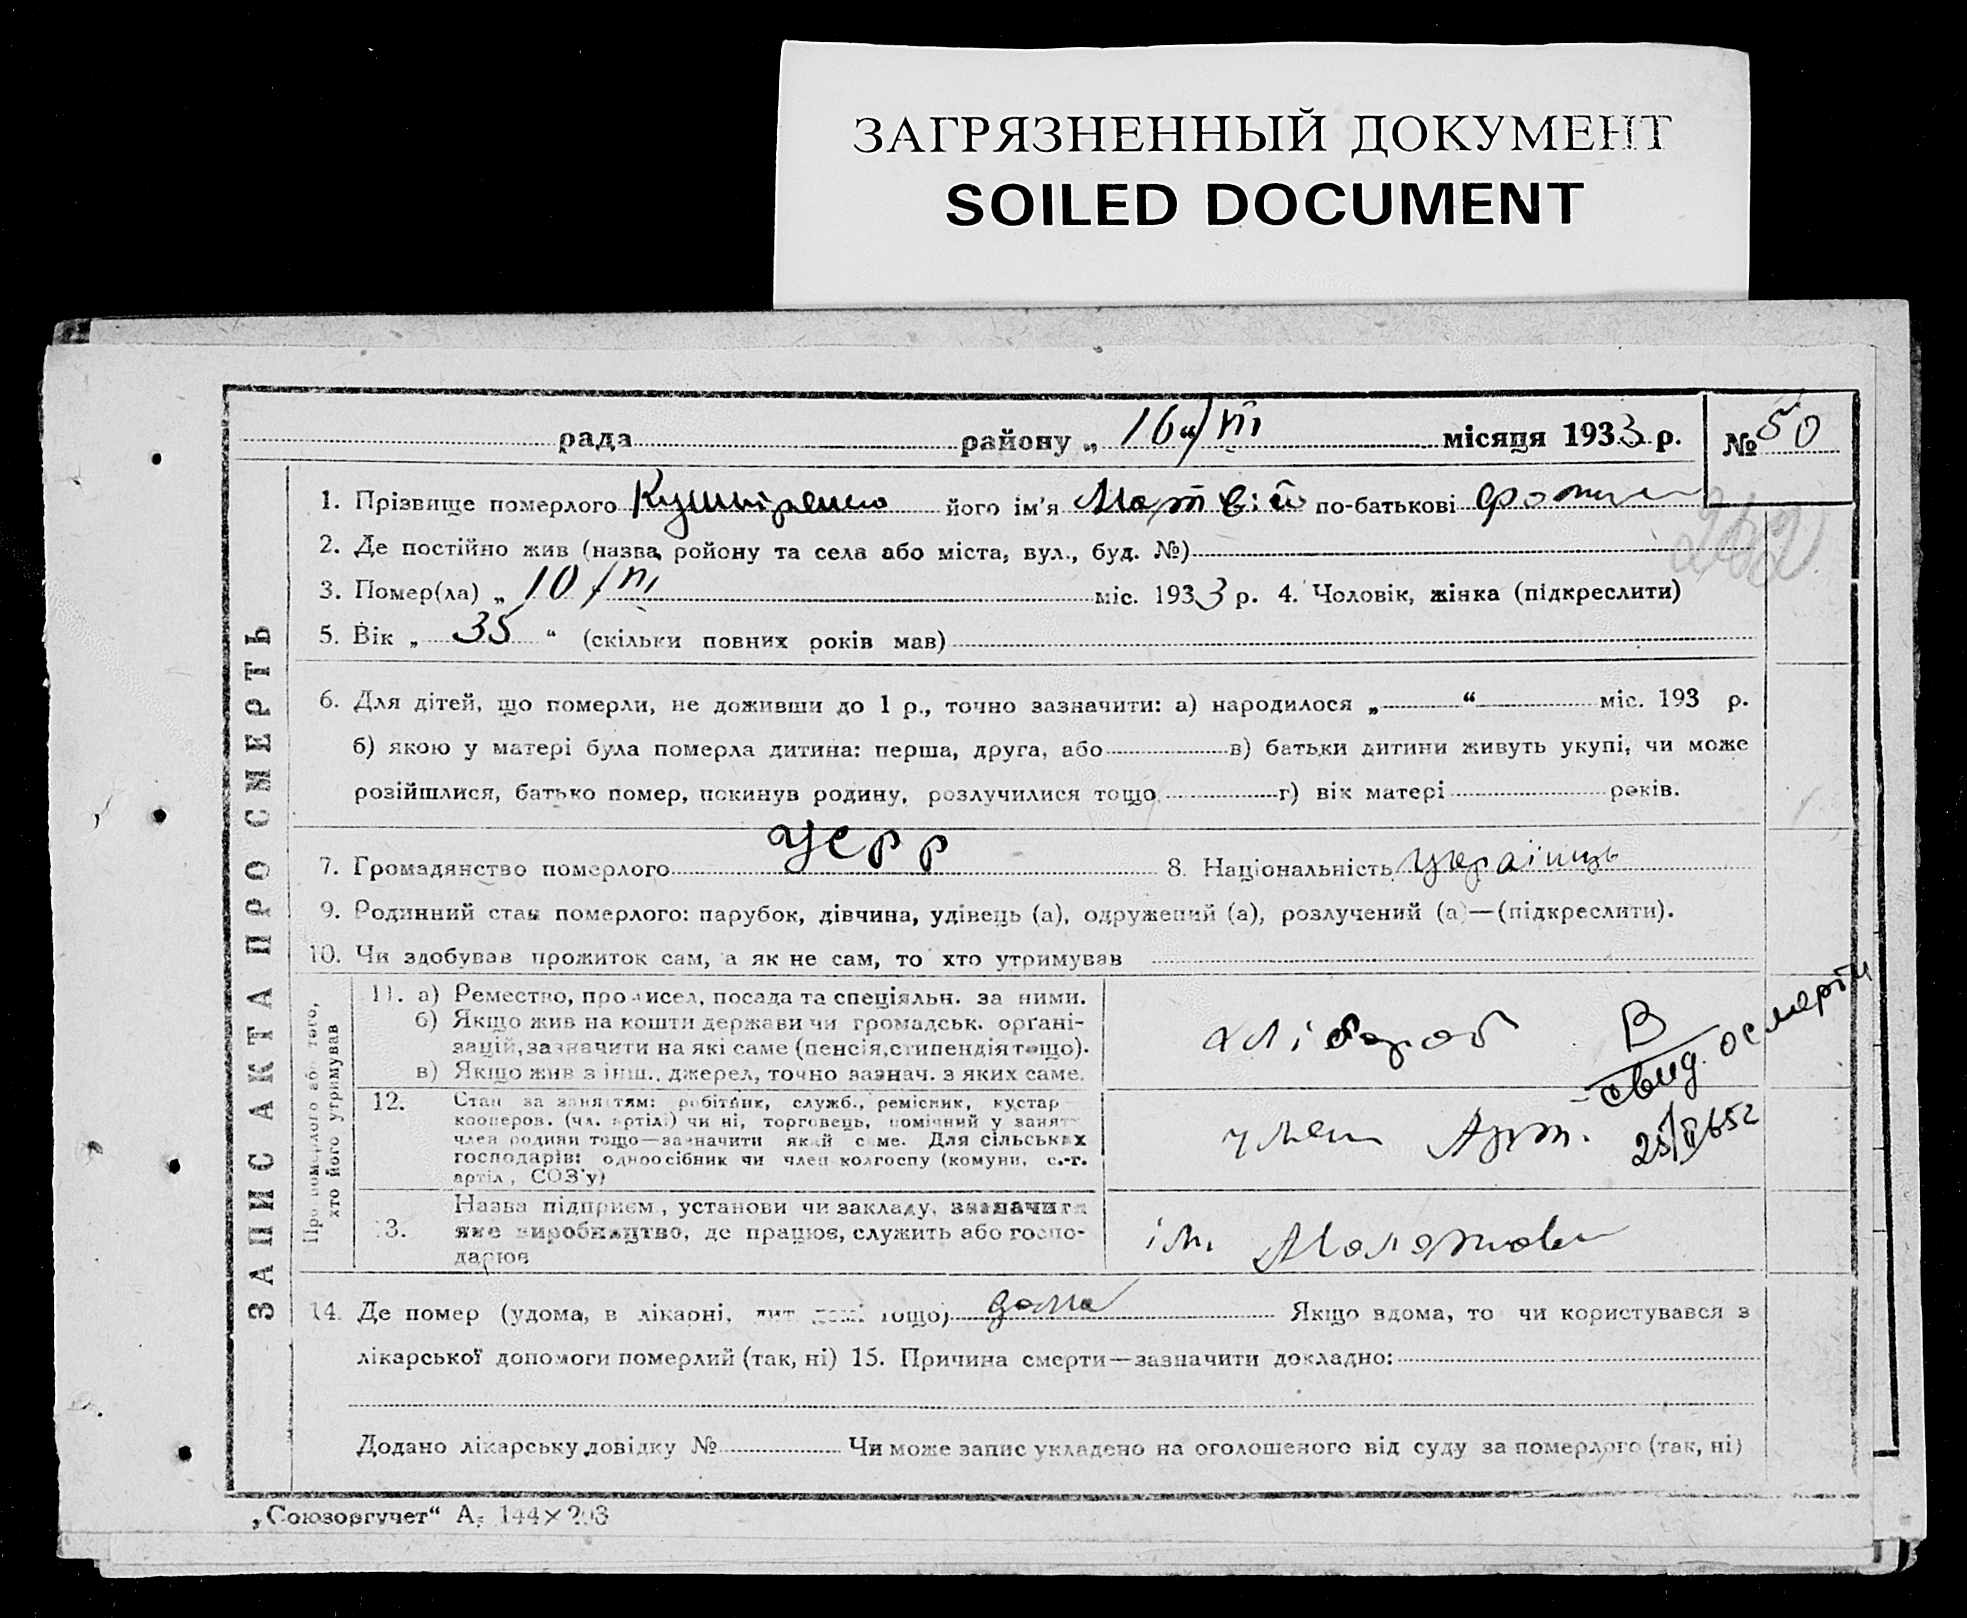 ЗАГРЯЗНЕННЫЙ ДОКУМЕНТ
SOILED DOCUMENT
рада району „ 16 “/III місяця 1933 р. № 50
1. Прізвище померлого Кушніренко його ім'я Матвій по-батькові
2. Де постійно жив (назва ройону та села або міста, вул., буд. №)
3. Помер(ла) „ 10 /III міс. 1933 р. 4. Чоловік, жінка (підкреслити)
5. Вік „ 35 “ (скільки повних років мав)
6. Для дітей, що померли, не доживши до 1 р., точно зазначити: а) народилося „ “ міс. 193 р.
б) якою у матері була померла дитина: перша, друга, або в) батьки дитини живуть укупі, чи може
розійшлися, батько помер, покинув родину, розлучилися тощо г) вік матері років.
7. Громадянство померлого УСРР 8. Національність українць
9. Родинний стан померлого: парубок, дівчина, удівець (а), одружений (а), розлучений (а)—(підкреслити).
10. Чи здобував прожиток сам, а як не сам, то хто утримував
ЗАПИС АКТА ПРО СМЕРТЬ
Про померлого або того,
хто його утримував
11. а) Ремество, промисел, посада та спеціяльн. за ними.
б) Якщо жив на кошти держави чи громадськ. орґані-
зацій, зазначити на які саме (пенсія, стипендія тощо).
в) Якщо жив з інш., джерел, точно зазнач. з яких саме.
хлібороб
В
свид. о смерти
12. Стан за заняттям: робітник, служб., ремісник, кустар
кооперов. (чл. артілі) чи ні, торговець, помічний у занят
член родини тощо—зазначити який саме. Для сільських
господарів: одноосібник чи член колгоспу (комуни, с.-г.
артіл, СОЗ'у)
член Арт.
13. Назва підприєм., установи чи закладу, зазначити
яке виробництво, де працює, служить або госпо-
дарює
ім. Молотова
14. Де помер (удома, в лікарні, дит. домі тощо) дома Якщо вдома, то чи користувався з
лікарської допомоги померлий (так, ні) 15. Причина смерти—зазначити докладно:
Додано лікарську довідку № Чи може запис укладено на оголошеного від суду за померлого (так, ні)
„Союзоргучет“ А. 144×203